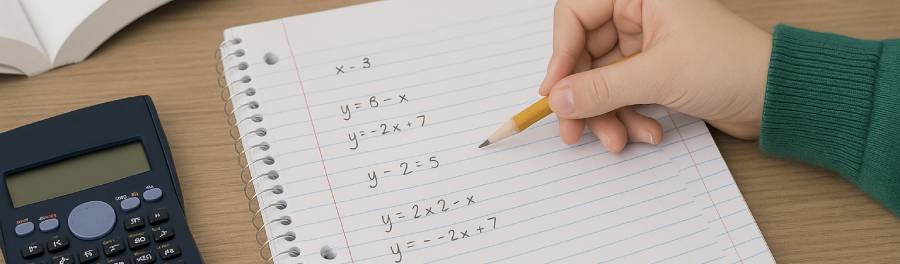 x - 3
y = 8 - x
y = -2x + 7
y - 2 = 5
y = 2x2 - x
y = - -2x + 7